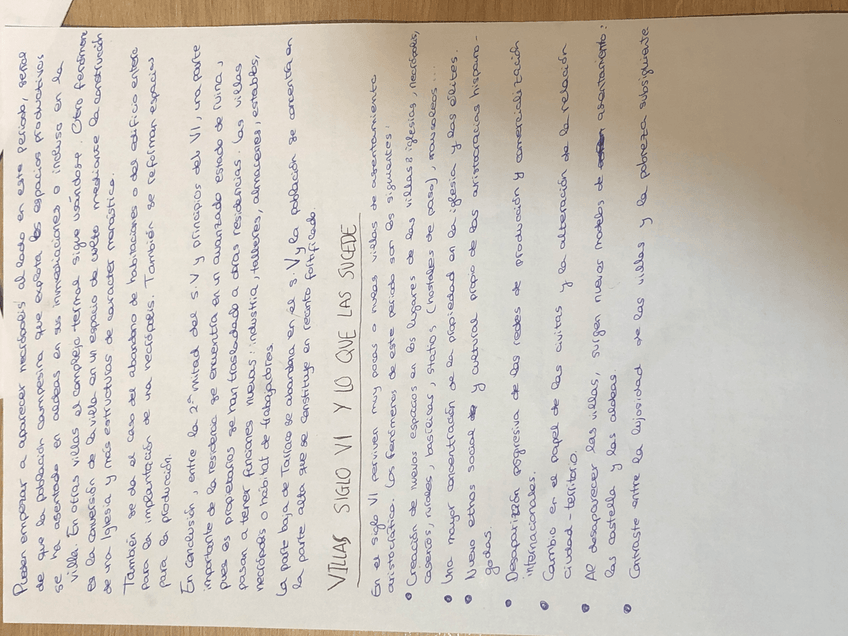 Pueden empezar a aparecer necrópolis al lado en este periodo, señal
de que la población campesina que explota los espacios productivos
se ha asentado en aldeas en sus inmediaciones o incluso en la
villa. En otras villas el complejo termal sigue usándose. Otro fenómeno
es la conversión de la villa en un espacio de culto mediante la construcción
de una Iglesia y más estructuras de carácter monástico.
También se da el caso del abandono de habitaciones o del edificio entero
para la implantación de una necrópolis. También se reforman espacios
para la producción.
En conclusión, entre la 2ª mitad del s.V y principios del VI, una parte
importante de la residencia se encuentra en un avanzado estado de ruina,
pues los propietarios se han trasladado a otras residencias. Las villas
pasan a tener funciones nuevas: industria, talleres, almacenes, establos,
necrópolis o hábitat de trabajadores.
La parte baja de Tarraco se abandona en el s.V y la población se concentra en
la parte alta que se constituye en recinto fortificado.
VILLAS SIGLO VI Y LO QUE LAS SUCEDE
En el siglo VI perviven muy pocas o nulas villas de asentamiento
aristocrático. Los fenómenos de este periodo son los siguientes:
• Creación de nuevos espacios en los lugares de las villas: iglesias, necrópolis,
caseríos, rurales, basílicas, statios (hostales de paso), mausoleos...
• Una mayor concentración de la propiedad en la iglesia y las élites.
• Nuevo ethos social y cultural propio de las aristocracias hispano-
godas.
• Desaparición progresiva de las redes de producción y comercialización
internacionales.
• Cambio en el papel de las civitas y la alteración de la relación
ciudad-territorio.
• Al desaparecer las villas, surgen nuevos modelos de asentamiento:
los castella y las aldeas.
• Contraste entre la lujosidad de las villas y la pobreza subsiguiente